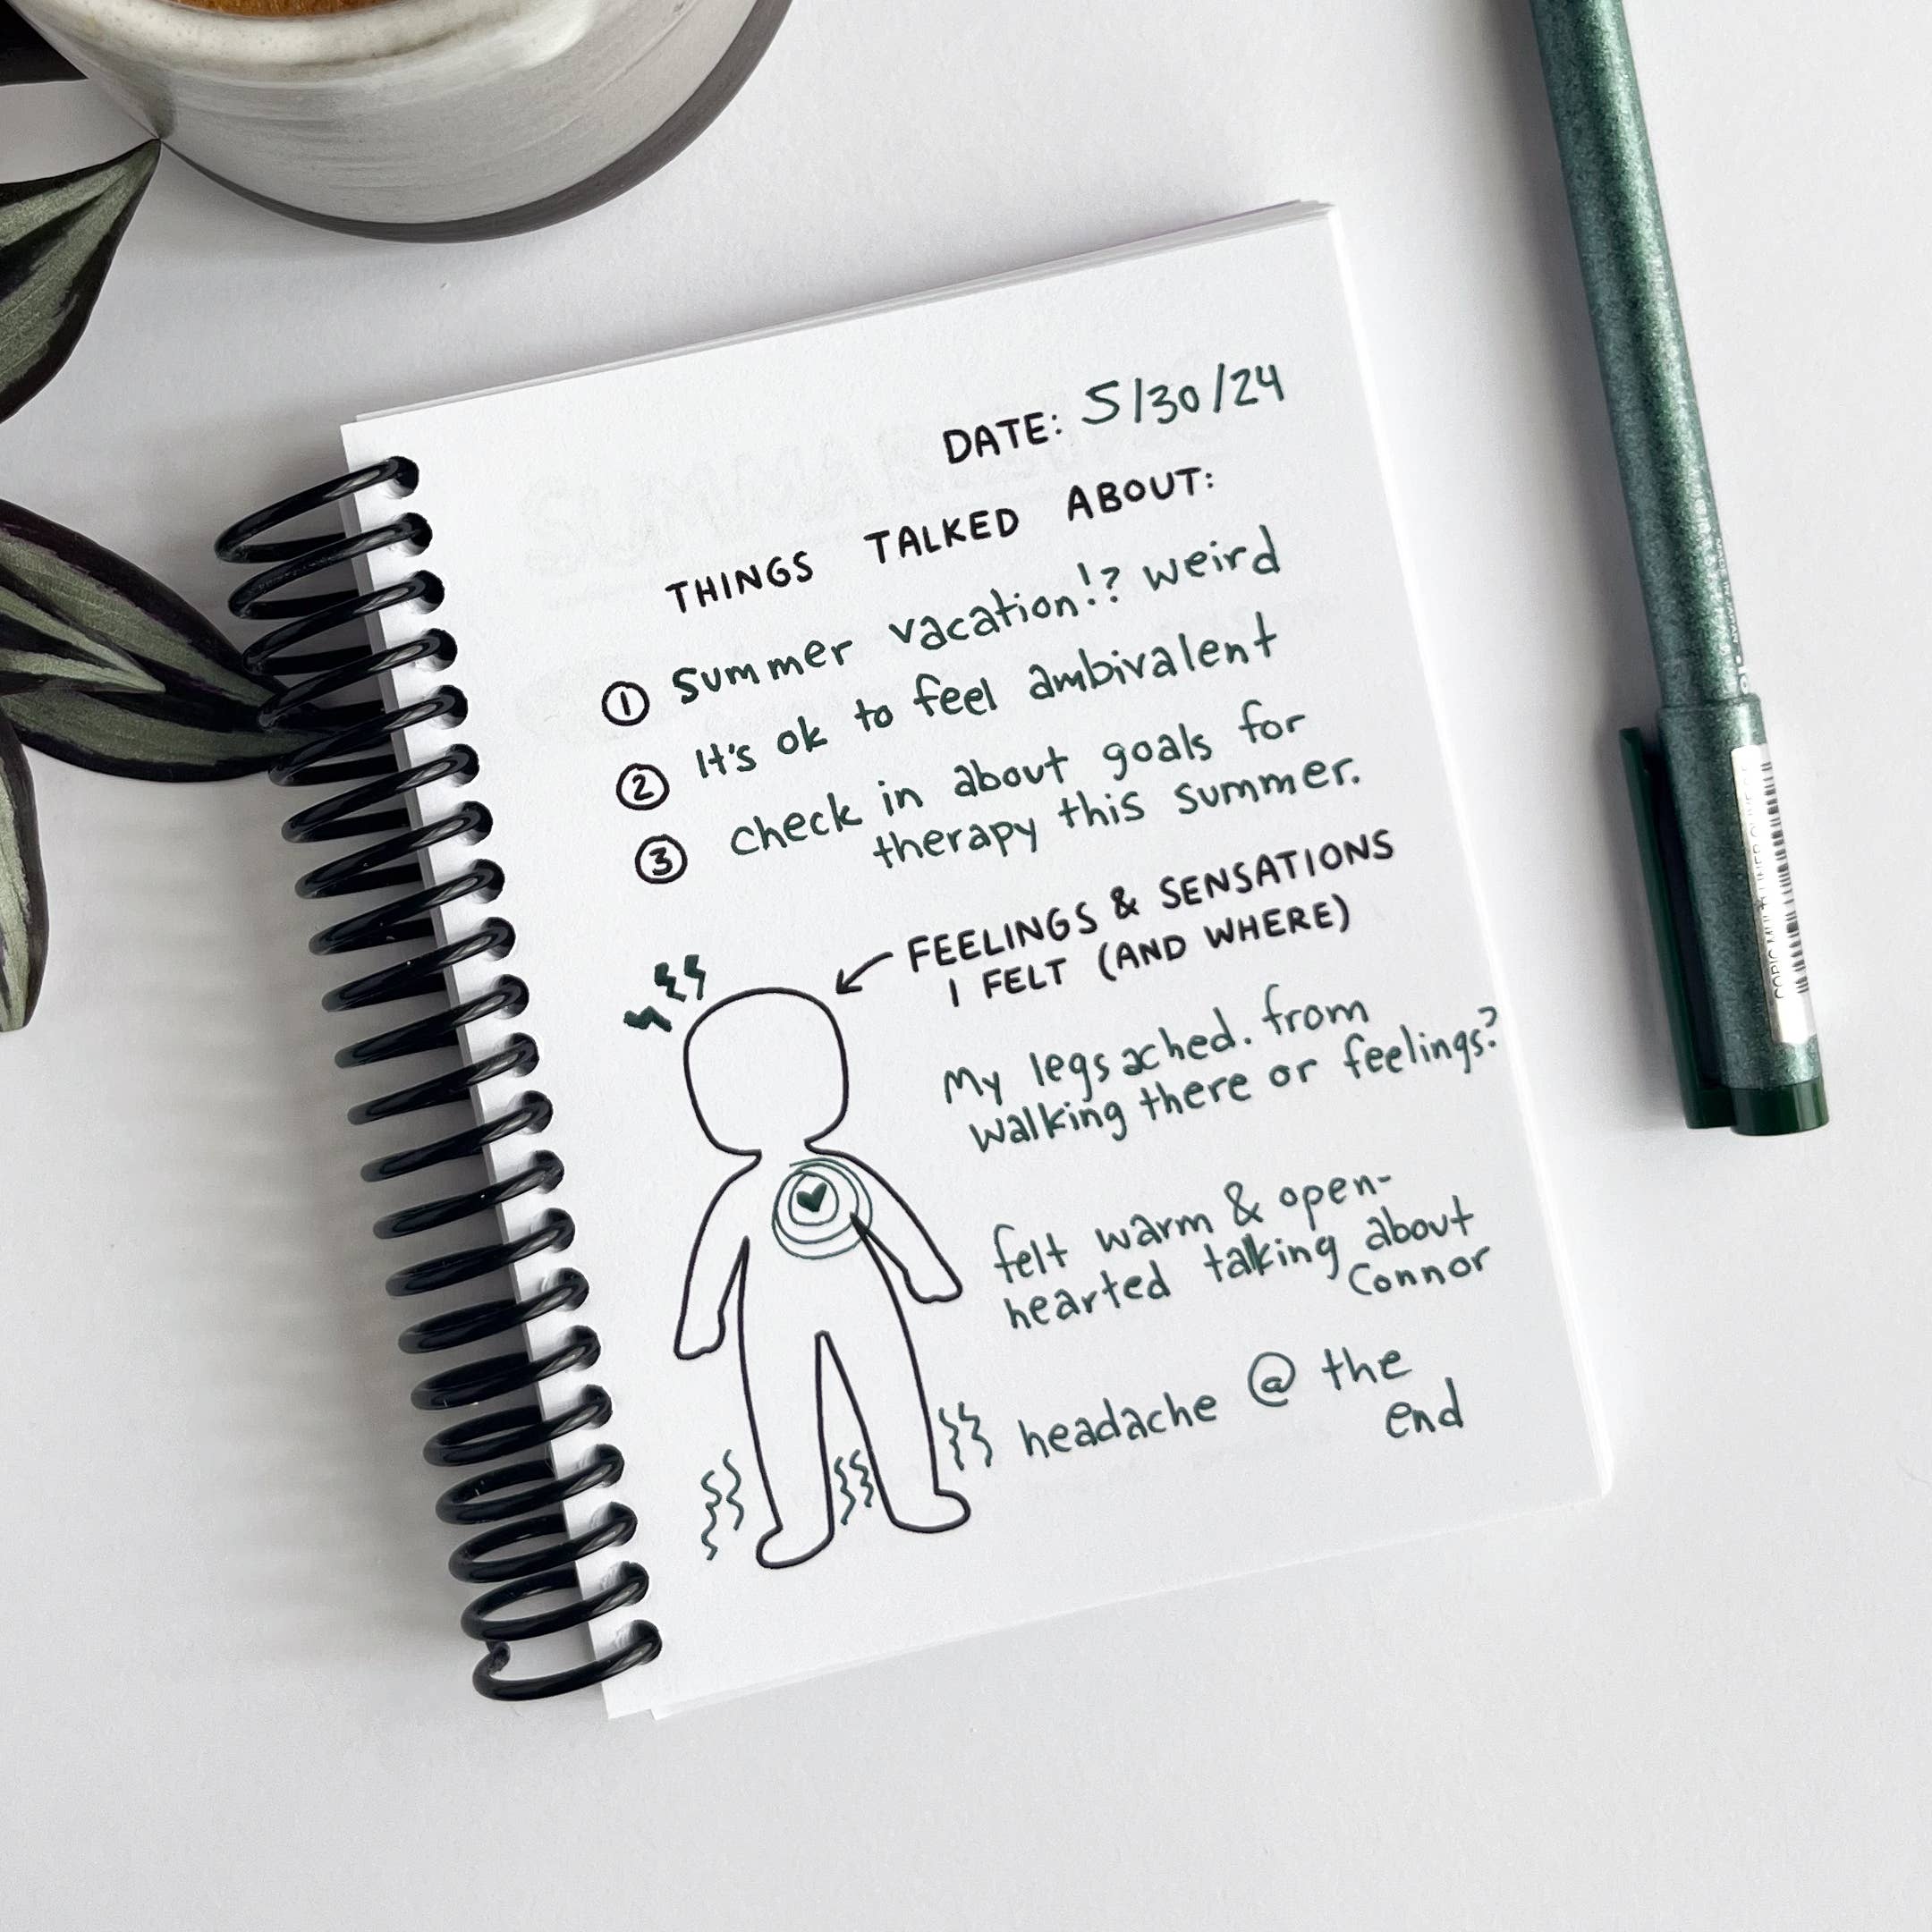 DATE: 5/30/24
THINGS TALKED ABOUT:
① Summer vacation!? weird
② It's ok to feel ambivalent
③ check in about goals for
therapy this summer.
FEELINGS & SENSATIONS
I FELT (AND WHERE)
My legs ached. from
walking there or feelings?
felt warm & open-
hearted talking about
Connor
headache @ the
end